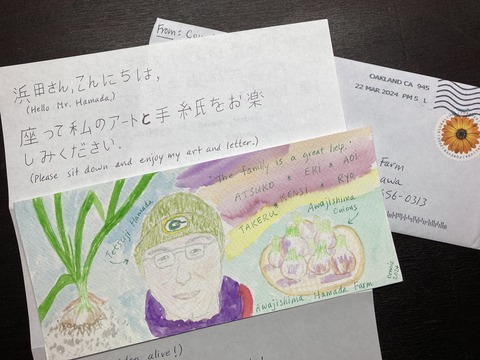 From:
OAKLAND CA 945
22 MAR 2024 PM 5 L
Farm
656-0313
浜田さん,こんにちは,
(Hello Mr. Hamada,)
座って私のアートと手紙をお楽
しみください.
(Please sit down and enjoy my art and letter.)
The family is a great help:
ATSUKO ★ ERI ★ AOI
TAKERU ★ KENJI ★ RYO
Tetsuji Hamada
G
Awajishima
Onions
Awajishima Hamada Farm
2024
alive!)